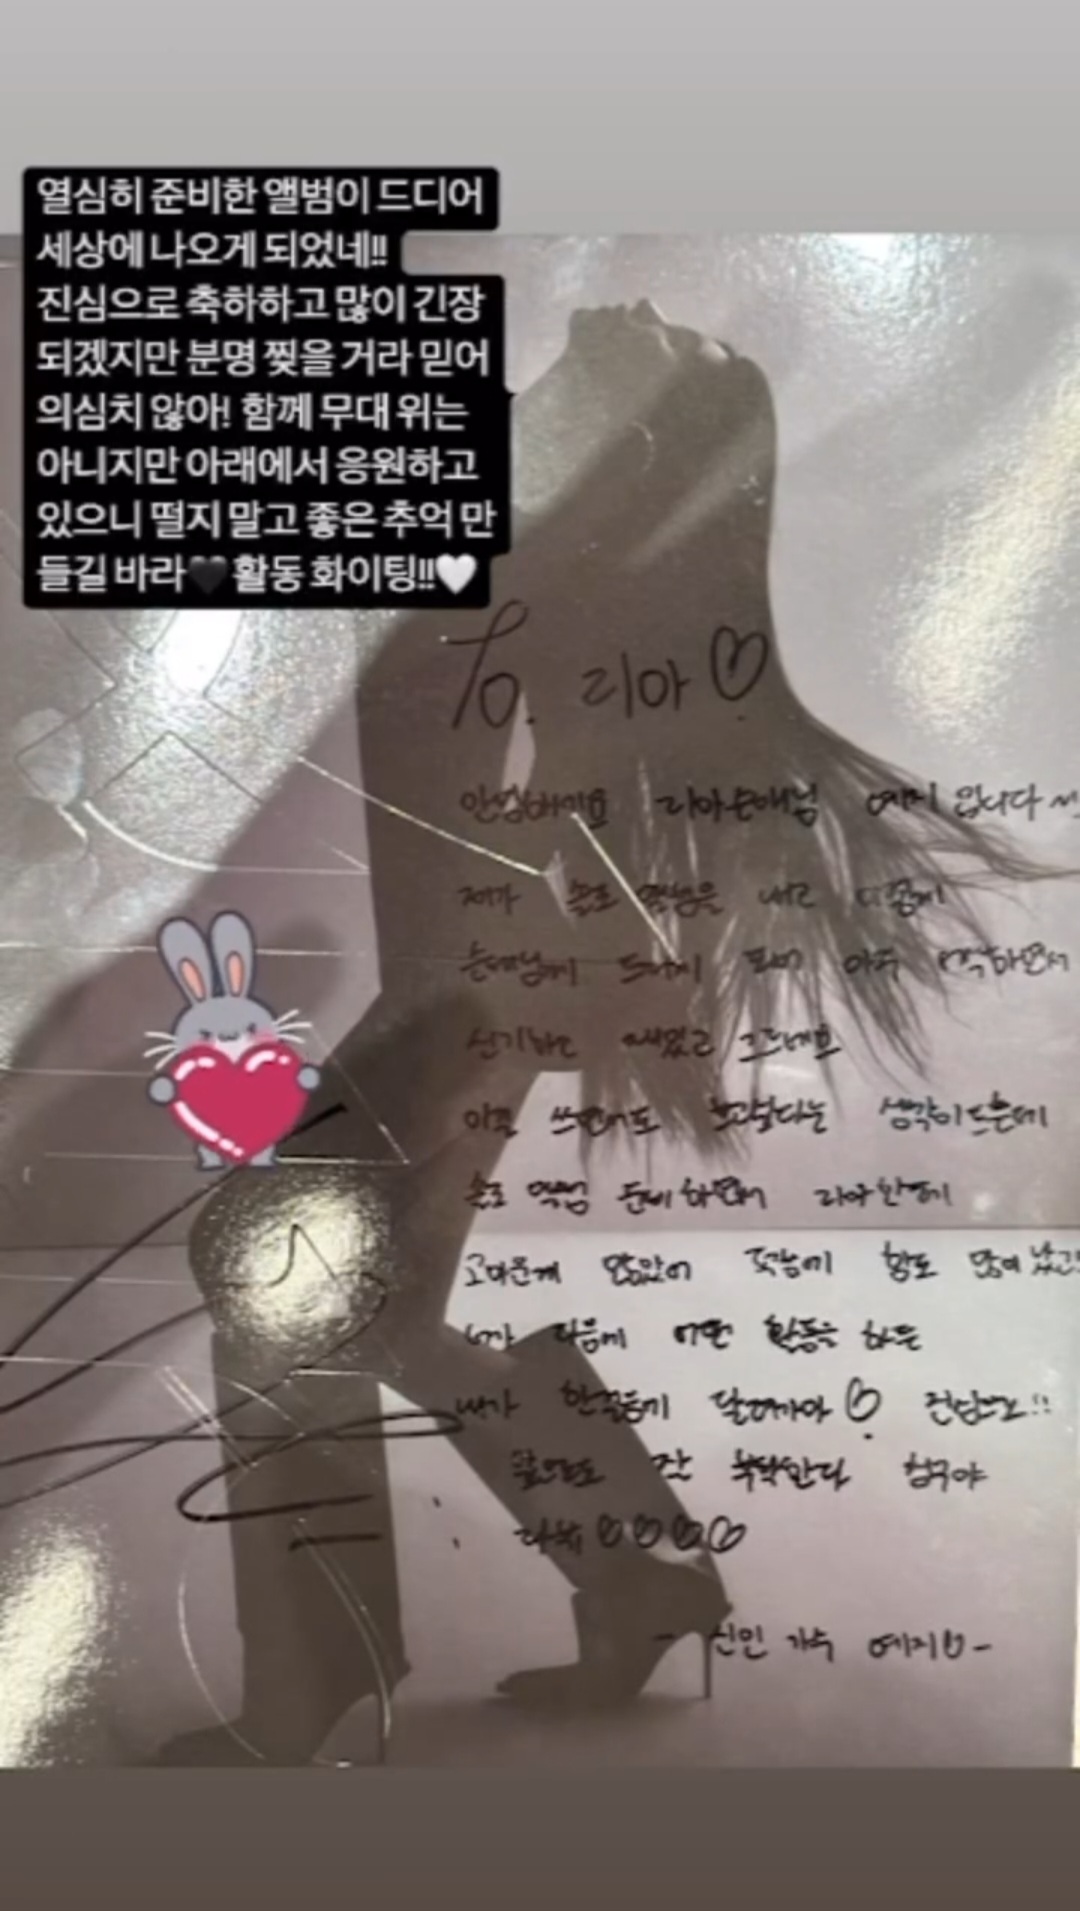 열심히 준비한 앨범이 드디어
세상에 나오게 되었네!!
진심으로 축하하고 많이 긴장
되겠지만 분명 찢을 거라 믿어
의심치 않아! 함께 무대 위는
아니지만 아래에서 응원하고
있으니 떨지 말고 좋은 추억 만
들길 바라🖤활동 화이팅!!🤍
To. 리아♡
리아선배님 예지입니다
제가 솔로 앨범을 내고 이렇게
선배님께 드리게
신기하고
이걸 쓰면서도 보고싶다는 생각이 드는데
솔로 앨범 준비하면서 리아한테
고마운게 많았어
니가 다음에 어떤 활동을 하든
내가 한걸음에 달려갈거야♡ 진심으로!!
앞으로도 잘 부탁한다 친구야
♡♡♡♡
- 신인 가수 예지♡-